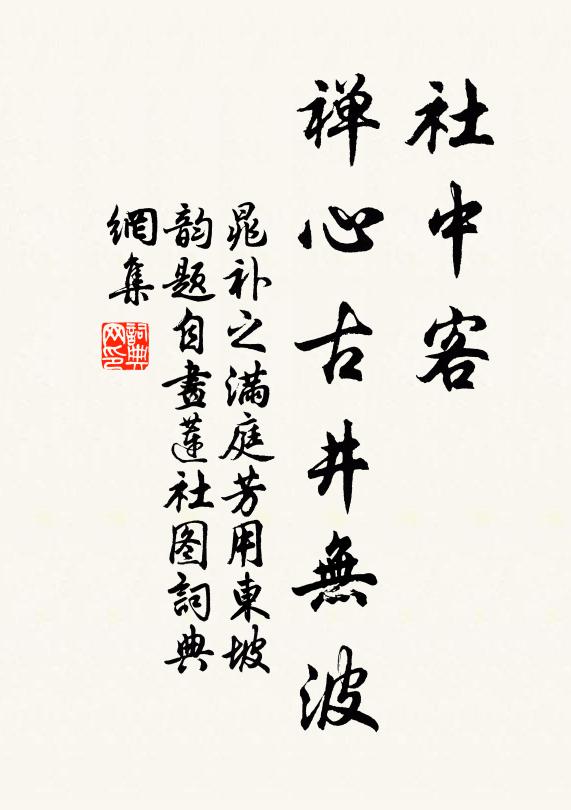 社中客
禅心古井無波
晁补之满庭芳用東坡
韵题自畫莲社图詞典
網集
詞典
网印